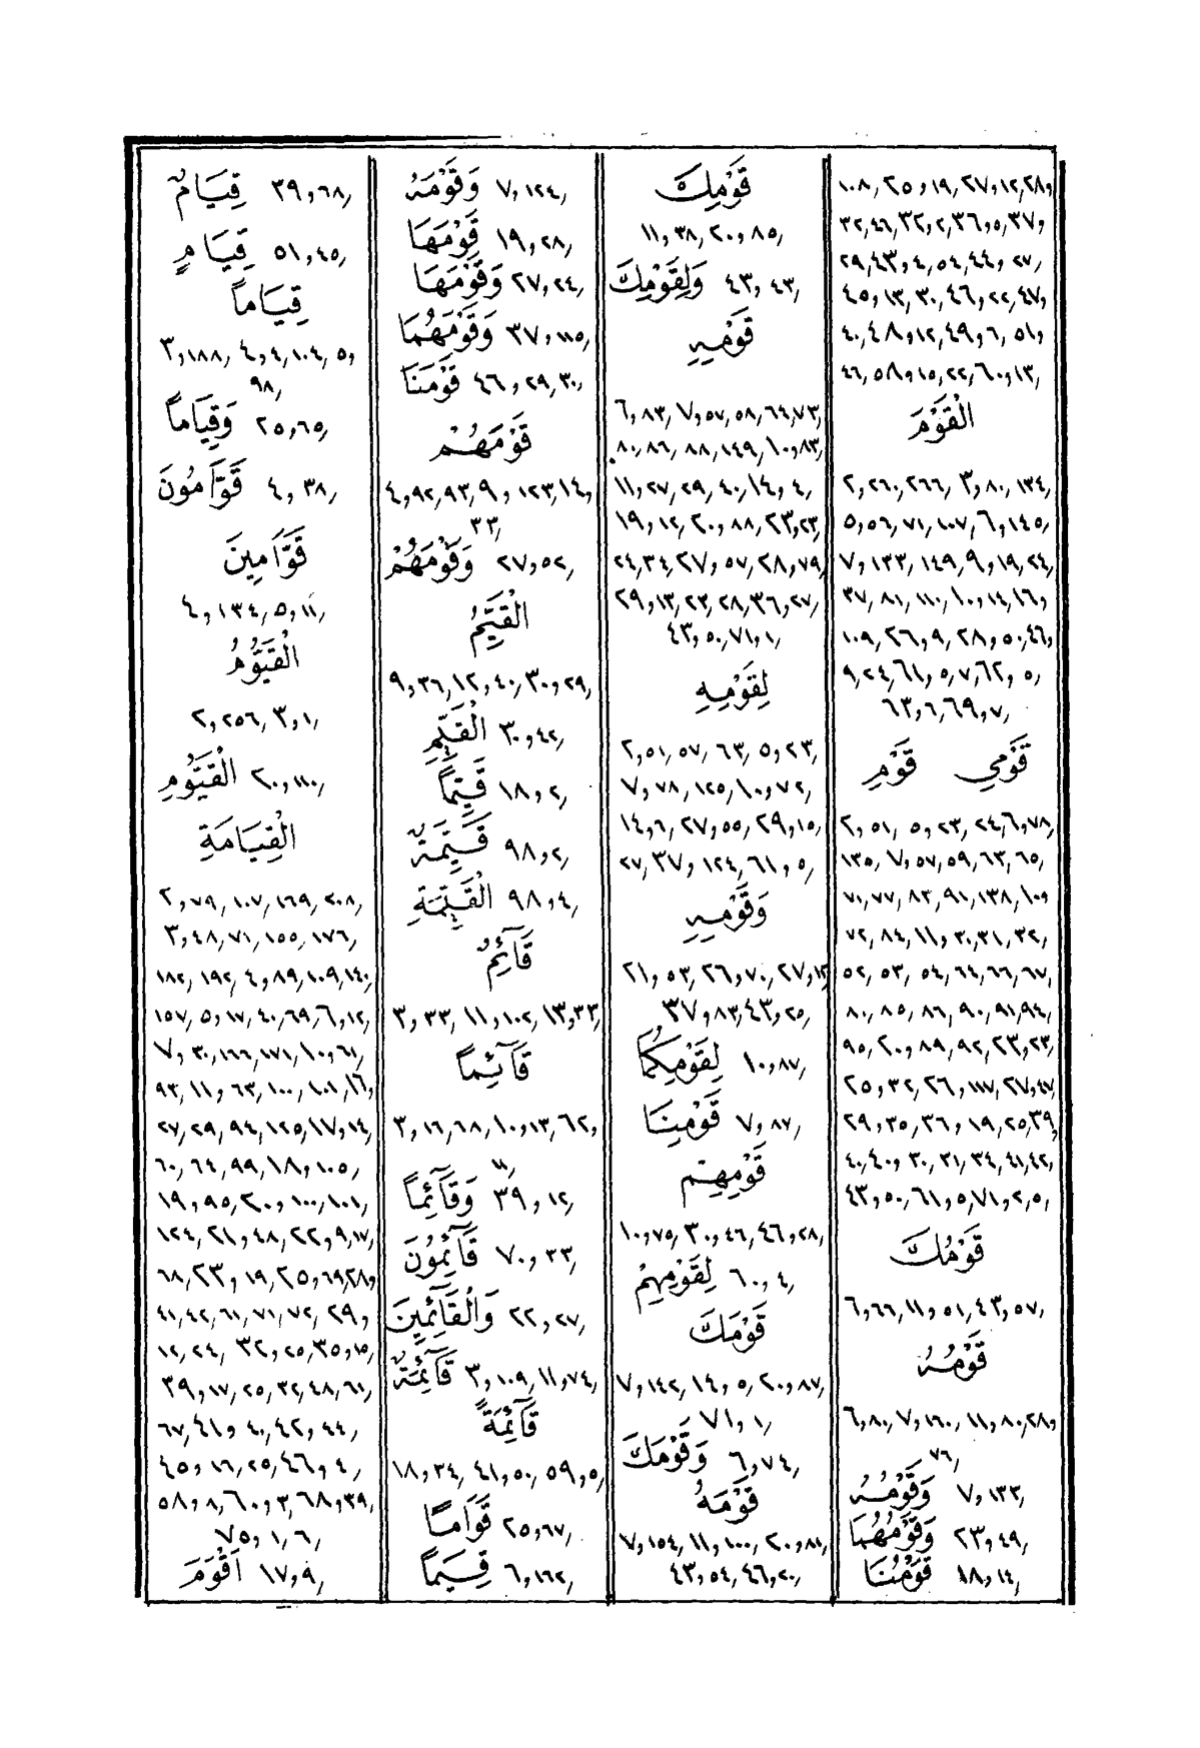 ١٠٨, ٢٥, ١٩, ٢٧, ١٢,٢٨,
٣٢,٤٦, ٣٢,٢, ٣٦,٥, ٣٧,
٢٩,٤٣, ٤, ٥٤, ٤٤, ٢٧,
٤٥, ١٣, ٣٠, ٤٦, ٢٢, ٤٧,
٤٠, ٤٨, ١٢, ٤٩, ٦, ٥١,
٤٦, ٥٨, ١٥, ٢٢, ٦٠, ١٣,
الْقَوْمَ
٢, ٢٦٠, ٢٦٦, ٣, ٨٠, ١٣٤,
٥, ٥٦, ٧١, ١٠٧, ٦, ١٤٥,
٧, ١٣٣, ١٤٩, ٩, ١٩, ٢٤,
٣٧, ٨١, ١١٠, ١٠, ١٤, ١٦,
١٠٩, ٢٦, ٩, ٢٨, ٥٠, ٤٦,
٩,٢٤, ٦١, ٥, ٧, ٦٢, ٥,
٦٣, ٦, ٦٩, ٧,
قَوْمِي قَوْمِ
٢, ٥١, ٥, ٢٣, ٢٤, ٦, ٧٨,
١٣٥, ٧, ٥٧, ٥٩, ٦٣, ٦٥,
٧١, ٧٧, ٨٣, ٩١, ١٣٨, ١٠,
٧٢, ٨٤, ١١, ٣٠, ٣١, ٣٢,
٥٢, ٥٣, ٥٤, ٦٤, ٦٦, ٦٧,
٨٠, ٨٥, ٨٦, ٩٠, ٩١, ٩٤,
٩٥, ٢٠, ٨٩, ٩٢, ٢٣, ٢٣,
٢٥, ٣٢, ٢٦, ١١٧, ٢٧, ٤٧,
٢٩, ٣٥, ٣٦, ١٩, ٢٥, ٣٩,
٤٠, ٤٠, ٣٠, ٣١, ٣٤, ٤١, ٤٢,
٤٣, ٥٠, ٦١, ٥, ٧١, ٢, ٥,
قَوْمُكَ
٦, ٦٦, ١١, ٥١, ٤٣, ٥٧,
قَوْمُهُ
٦, ٨٠, ٧, ١٦٠, ١١, ٨٠, ٢٨,
٧٦,
وَقَوْمُهُ ٧, ١٣٣,
وَقَوْمُهُمَا ٢٣, ٤٩,
قَوْمُنَا ١٨, ١٤,
قَوْمِكَ
١١, ٣٨, ٢٠, ٨٥,
وَلِقَوْمِكَ ٤٣, ٤٣,
قَوْمِهِ
٦, ٨٣, ٧, ٥٧, ٥٨, ٦٤, ٧٣,
٨٠, ٨٦, ٨٨, ١٤٩, ١٠, ٨٣,
١١, ٢٧, ٢٩, ٤٠, ١٤, ٤,
١٩, ١٢, ٢٠, ٨٨, ٢٣, ٢٣,
٢٤, ٣٤, ٢٧, ٥٧, ٢٨, ٧٩,
٢٩, ١٣, ٢٣, ٢٨, ٣٦, ٢٧,
٤٣, ٥٠, ٧١, ١,
لِقَوْمِهِ
٢, ٥١, ٥٧, ٦٣, ٥, ٢٣,
٧, ٧٨, ١٢٥, ١٠, ٧٢,
١٤, ٦, ٢٧, ٥٥, ٢٩, ١٥,
٢٧, ٣٧, ١٢٤, ٦١, ٥,
وَقَوْمِهِ
٢١, ٥٣, ٢٦, ٧٠, ٢٧, ١٢,
٣٧, ٨٣, ٤٣, ٢٥,
لِقَوْمِكُمَا ١٠, ٨٧,
قَوْمِنَا ٧, ٨٧,
قَوْمِهِمْ
١٠, ٧٥, ٣٠, ٤٦, ٤٦, ٢٨,
لِقَوْمِهِمْ ٦٠, ٤,
قَوْمَكَ
٧, ١٤٢, ١٤, ٥, ٢٠, ٨٧,
٧١, ١,
وَقَوْمَكَ ٦, ٧٤,
قَوْمَهُ
٧, ١٥٤, ١١, ١٠٠, ٢٠, ٨١,
٤٣, ٥٤, ٤٦, ٢٠,
وَقَوْمَهُ ٧, ١٢٤,
قَوْمَهَا ١٩, ٢٨,
وَقَوْمَهَا ٢٧, ٢٤,
وَقَوْمَهُمَا ٣٧, ١١٥,
قَوْمَنَا ٤٦, ٢٩, ٣٠,
قَوْمَهُمْ
٤, ٩٢, ٩٣, ٩, ١٢٣, ١٤,
٣٣,
وَقَوْمَهُمْ ٢٧, ٥٢,
الْقَيِّمُ
٩, ٣٦, ١٢, ٤٠, ٣٠, ٢٩,
الْقَيِّمِ ٣٠, ٤٢,
قَيِّمًا ١٨, ٢,
قَيِّمَةٌ ٩٨, ٢,
الْقَيِّمَةِ ٩٨, ٤,
قَآئِمٌ
٣, ٣٣, ١١, ١٠٢, ١٣, ٣٣,
قَآئِمًا
٣, ١٦, ٦٨, ١٠, ١٣, ٦٢,
١١,
وَقَآئِمًا ٣٩, ١٢,
قَآئِمُونَ ٧٠, ٣٣,
وَالْقَآئِمِينَ ٢٢, ٢٧,
قَآئِمَةٌ ٣, ١٠٩, ١١, ٧٤,
قَآئِمَةً
١٨, ٣٤, ٤١, ٥٠, ٥٩, ٥,
قَوَامًا ٢٥, ٦٧,
قِيَمًا ٦, ١٦٢,
قِيَامٌ ٣٩, ٦٨,
قِيَامٍ ٥١, ٤٥,
قِيَامًا
٣, ١٨٨, ٤, ٤, ١٠٤, ٥,
٩٨,
وَقِيَامًا ٢٥, ٦٥,
قَوَّامُونَ ٤, ٣٨,
قَوَّامِينَ
٤, ١٣٤, ٥, ١١,
الْقَيُّومُ
٢, ٢٥٦, ٣, ١,
الْقَيُّومِ ٢٠, ١١٠,
الْقِيَامَةِ
٢, ٧٩, ١٠٧, ١٦٩, ٢٠٨,
٣, ٤٨, ٧١, ١٥٥, ١٧٦,
١٨٢, ١٩٢, ٤, ٨٩, ١٠٩, ١٤٠,
١٥٧, ٥, ١٧, ٤٠, ٦٩, ٦, ١٢,
٧, ٣٠, ١٦٦, ١٧١, ١٠, ٦١,
٩٣, ١١, ٦٣, ١٠٠, ١٠١, ١٦,
٢٧, ٢٩, ٩٤, ١٢٥, ١٧, ١٤,
٦٠, ٦٤, ٩٩, ١٨, ١٠٥,
١٩, ٩٥, ٢٠, ١٠٠, ١٠١,
١٢٤, ٢١, ٤٨, ٢٢, ٩, ١٧,
٦٨, ٢٣, ١٩, ٢٥, ٦٩, ٢٨,
٤١, ٤٢, ٦١, ٧١, ٧٢, ٢٩,
١٢, ٢٤, ٣٢, ٢٥, ٣٥, ١٥,
٣٩, ١٧, ٢٥, ٣٢, ٤٨, ٦١,
٦٧, ٤١, ٤٠, ٤٢, ٤٤,
٤٥, ١٦, ٢٥, ٤٦, ٤,
٥٨, ٨, ٦٠, ٣, ٦٨, ٣٩,
٧٥, ١, ٦,
اَقْوَمَ ١٧, ٩,